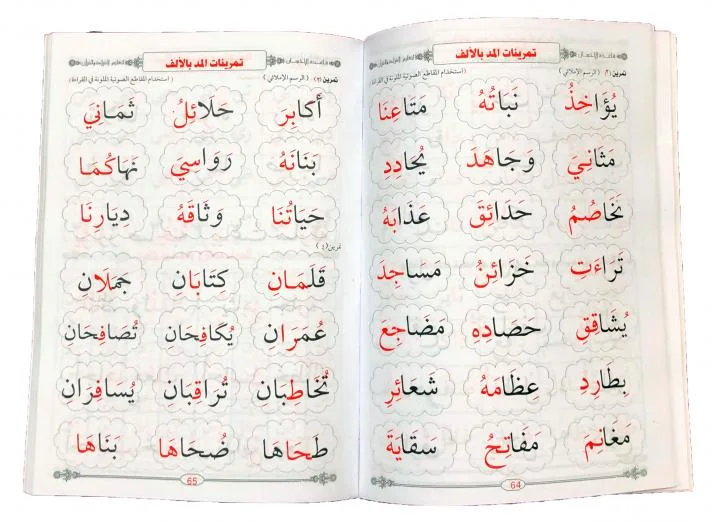 تمرينات المد بالألف
تمرين (٣) ( الرسم الإملائي ) (استخدام المقاطع الصوتية الملونة في القراءة)
يُؤَاخِذُ نَبَاتُهُ مَتَاعِنَا
مَثَانِيَ وَجَاهَدَ يُحَادِدِ
نَخَاصُمُ حَدَائِقَ عَذَابَهُ
تَرَاءَتِ خَزَائِنُ مَسَاجِدَ
يُشَاقِقِ حَصَادِهِ مَضَاجِعَ
بِطَارِدِ عِظَامَهُ شَعَائِرِ
مَغَانِمَ مَفَاتِحُ سَقَايَةَ
64
تمرينات المد بالألف
تمرين (٣) ( الرسم الإملائي ) (استخدام المقاطع الصوتية الملونة في القراءة)
أَكَابِرَ حَلَائِلُ ثَمَانِيَ
بَنَانَهُ رَوَاسِيَ نَهَاكُمَا
حَيَاتُنَا وَثَاقَهُ دِيَارِنَا
تمرين(٤)
قَلَمَانِ كِتَابَانِ جَمَلَانِ
عُمَرَانِ يُكَافِحَانِ تُصَافِحَانِ
تُخَاطِبَانِ تُرَاقِبَانِ يُسَافِرَانِ
طَحَاهَا ضُحَاهَا بَنَاهَا
65